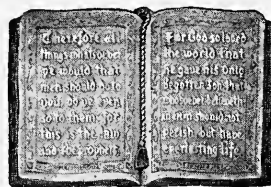 Therefore all
things whatsoever
ye would that
men should do to
you, do ye even
so to them: for
this is the law
and the prophets
For God so loved
the world that
he gave his only
begotten Son that
whosoever believeth
in him should not
perish but have
everlasting life